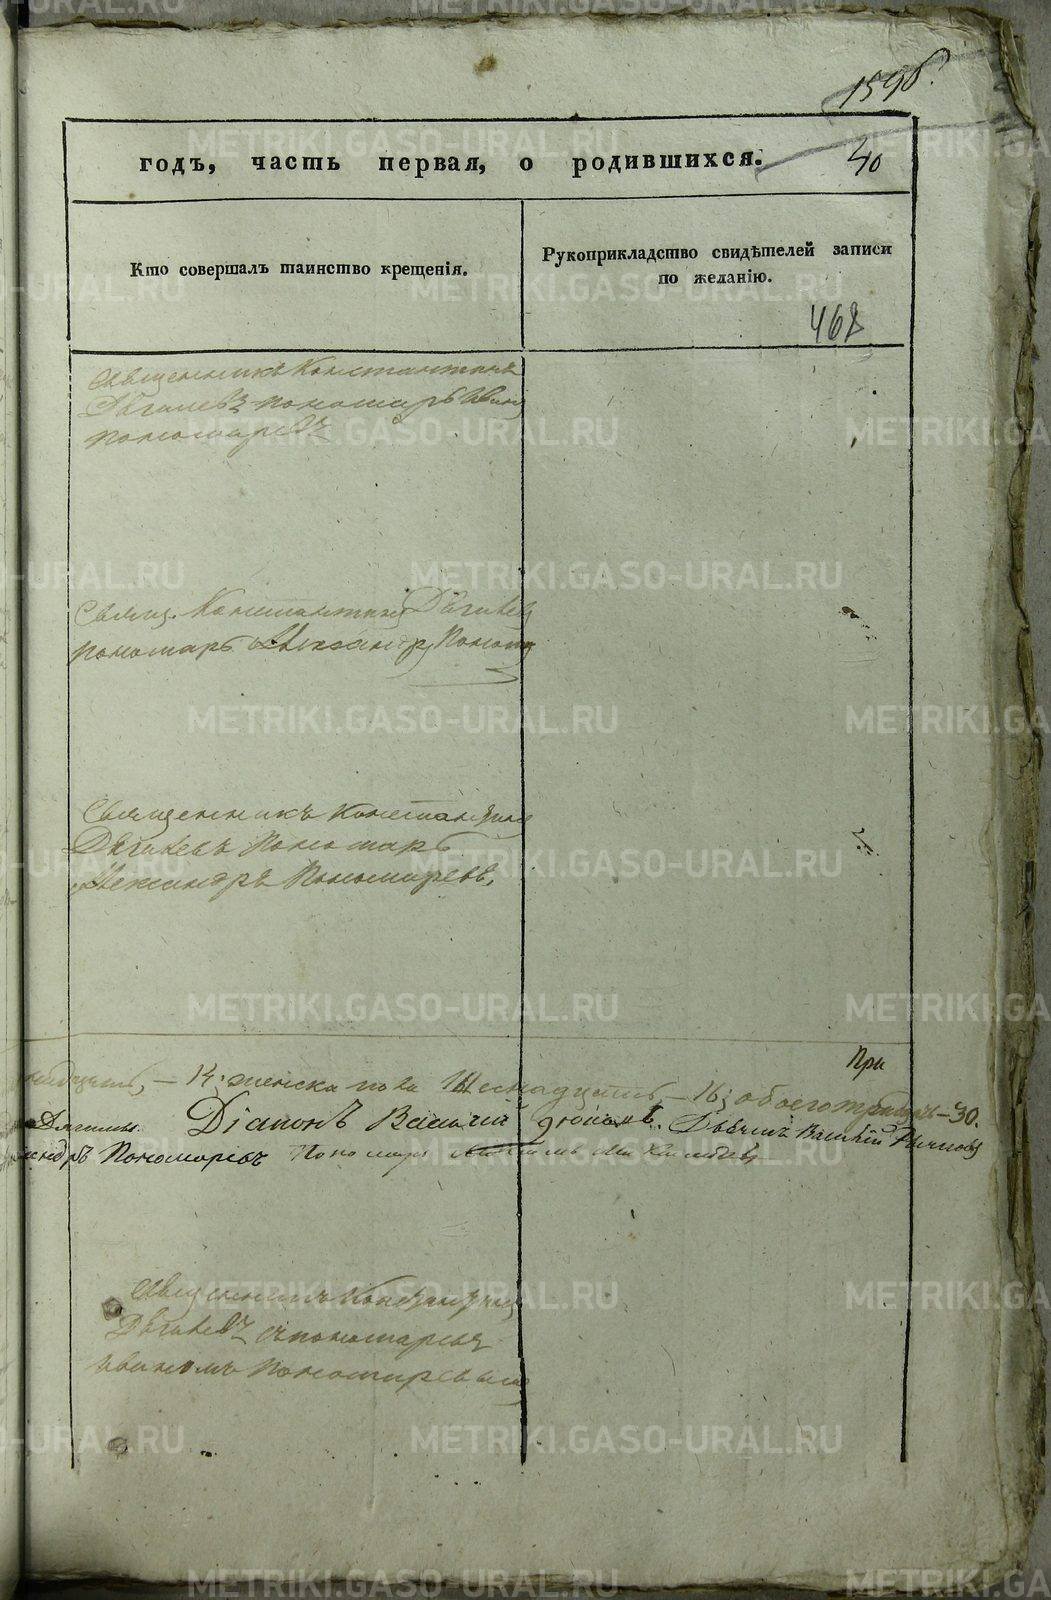 159б.
годъ, часть первая, о родившихся.
40
Кто совершалъ таинство крещенія.
Рукоприкладство свидѣтелей записи
по желанію.
468
Священникъ Константинъ
Дягилевъ пономарь Иванъ
Пономаревъ
Свящ. Константинъ Дягилевъ
пономарь Александръ Поном
Священникъ Константинъ
Дягилевъ Пономарь
Александръ Пономаревъ.
При
— 14; женска пола Шеснадцать — 16; обоего тридцать — 30.
Діаконъ Василій Дьячекъ Василій
Пономаревъ Пономарь
Священникъ Константинъ
Дягилевъ с пономаремъ
Иваномъ Пономаревымъ
METRIKI.GASO-URAL.RU